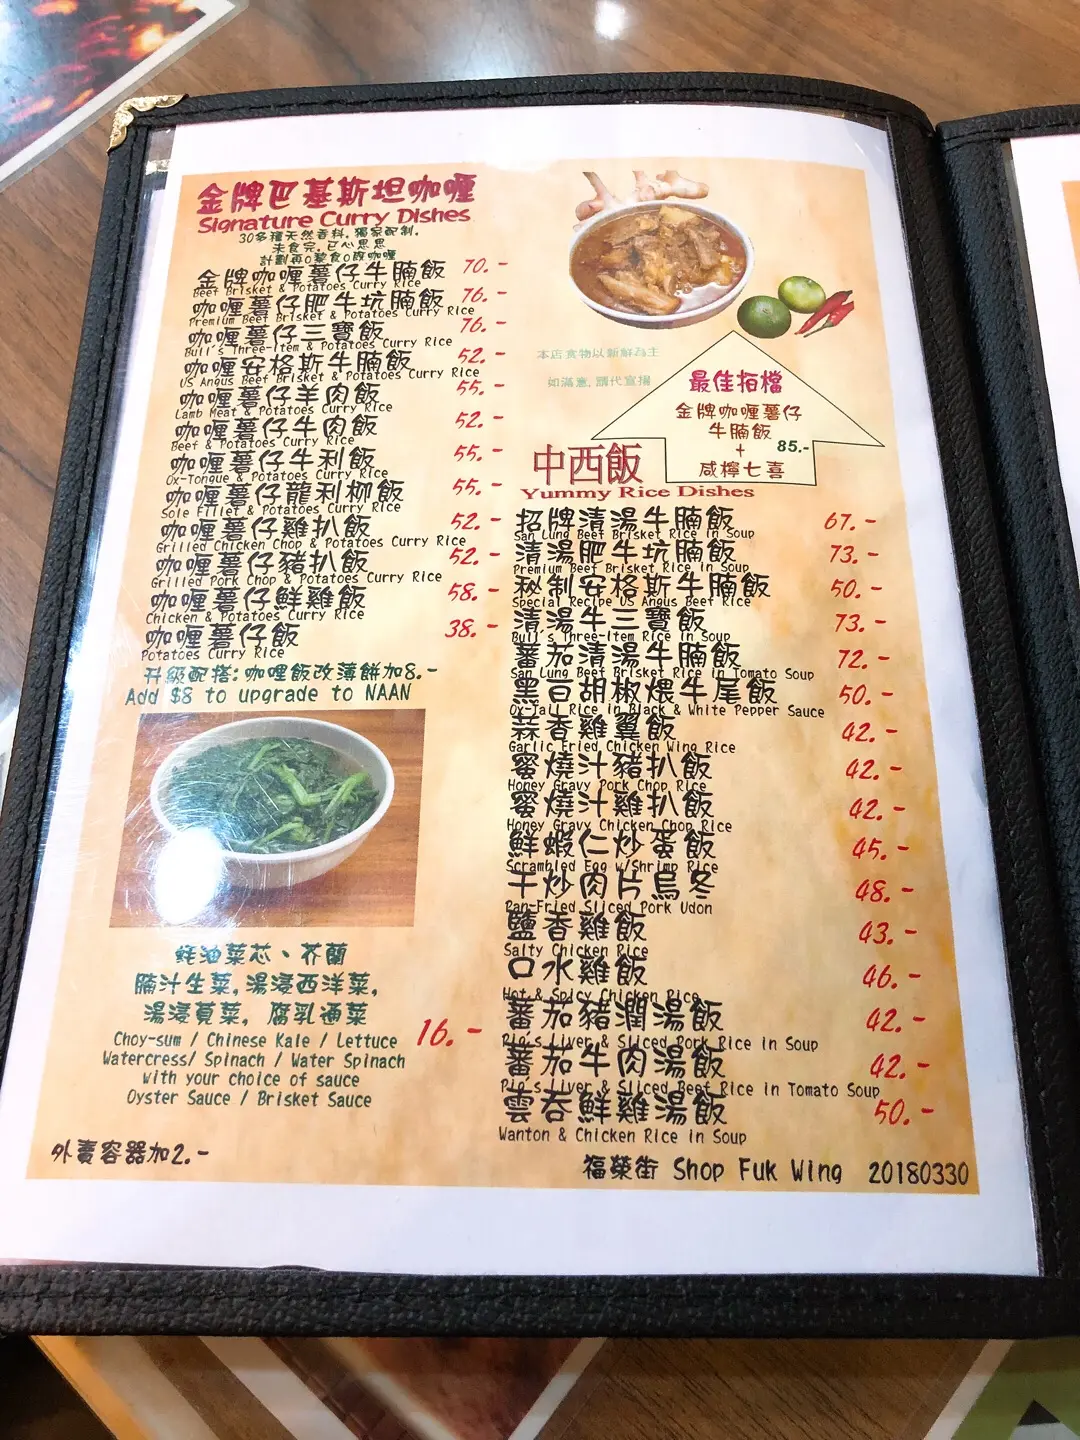 金牌巴基斯坦咖喱
Signature Curry Dishes
30多種天然香料, 獨家配制,
未食完, 已心思思
計劃再o黎食o陣咖喱
金牌咖喱薯仔牛腩飯 70.-
Beef Brisket & Potatoes Curry Rice
咖喱薯仔肥牛坑腩飯 76.-
Premium Beef Brisket & Potatoes Curry Rice
咖喱薯仔三寶飯 76.-
Bull's Three-Item & Potatoes Curry Rice
咖喱安格斯牛腩飯 52.-
US Angus Beef Brisket & Potatoes Curry Rice
咖喱薯仔羊肉飯 55.-
Lamb Meat & Potatoes Curry Rice
咖喱薯仔牛肉飯 52.-
Beef & Potatoes Curry Rice
咖喱薯仔牛利飯 55.-
Ox-Tongue & Potatoes Curry Rice
咖喱薯仔龍利柳飯 55.-
Sole Fillet & Potatoes Curry Rice
咖喱薯仔雞扒飯 52.-
Grilled Chicken Chop & Potatoes Curry Rice
咖喱薯仔豬扒飯 52.-
Grilled Pork Chop & Potatoes Curry Rice
咖喱薯仔鮮雞飯 58.-
Chicken & Potatoes Curry Rice
咖喱薯仔飯 38.-
Potatoes Curry Rice
升級配搭: 咖哩飯改薄餅加8.-
Add $8 to upgrade to NAAN
蚝油菜芯、芥蘭
腩汁生菜, 湯浸西洋菜,
湯浸莧菜, 腐乳通菜
Choy-sum / Chinese Kale / Lettuce 16.-
Watercress/ Spinach / Water Spinach
with your choice of sauce
Oyster Sauce / Brisket Sauce
外賣容器加2.-
本店食物以新鮮為主
如滿意, 請代宣揚
最佳拍檔
金牌咖喱薯仔
牛腩飯
+ 85.-
咸檸七喜
中西飯
Yummy Rice Dishes
招牌清湯牛腩飯 67.-
San Lung Beef Brisket Rice in Soup
清湯肥牛坑腩飯 73.-
Premium Beef Brisket Rice in Soup
秘制安格斯牛腩飯 50.-
Special Recipe US Angus Beef Rice
清湯牛三寶飯 73.-
Bull's Three-Item Rice in Soup
蕃茄清湯牛腩飯 72.-
San Lung Beef Brisket Rice in Tomato Soup
黑豆胡椒煨牛尾飯 50.-
Ox-Tail Rice in Black & White Pepper Sauce
蒜香雞翼飯 42.-
Garlic Fried Chicken Wing Rice
蜜燒汁豬扒飯 42.-
Honey Gravy Pork Chop Rice
蜜燒汁雞扒飯 42.-
Honey Gravy Chicken Chop Rice
鮮蝦仁炒蛋飯 45.-
Scrambled Egg w/Shrimp Rice
干炒肉片烏冬 48.-
Pan-Fried Sliced Pork Udon
鹽香雞飯 43.-
Salty Chicken Rice
口水雞飯 46.-
Hot & Spicy Chicken Rice
蕃茄豬潤湯飯 42.-
Pig's Liver & Sliced Pork Rice in Soup
蕃茄牛肉湯飯 42.-
Pig's Liver & Sliced Beef Rice in Tomato Soup
雲吞鮮雞湯飯 50.-
Wanton & Chicken Rice in Soup
福榮街 Shop Fuk Wing 20180330